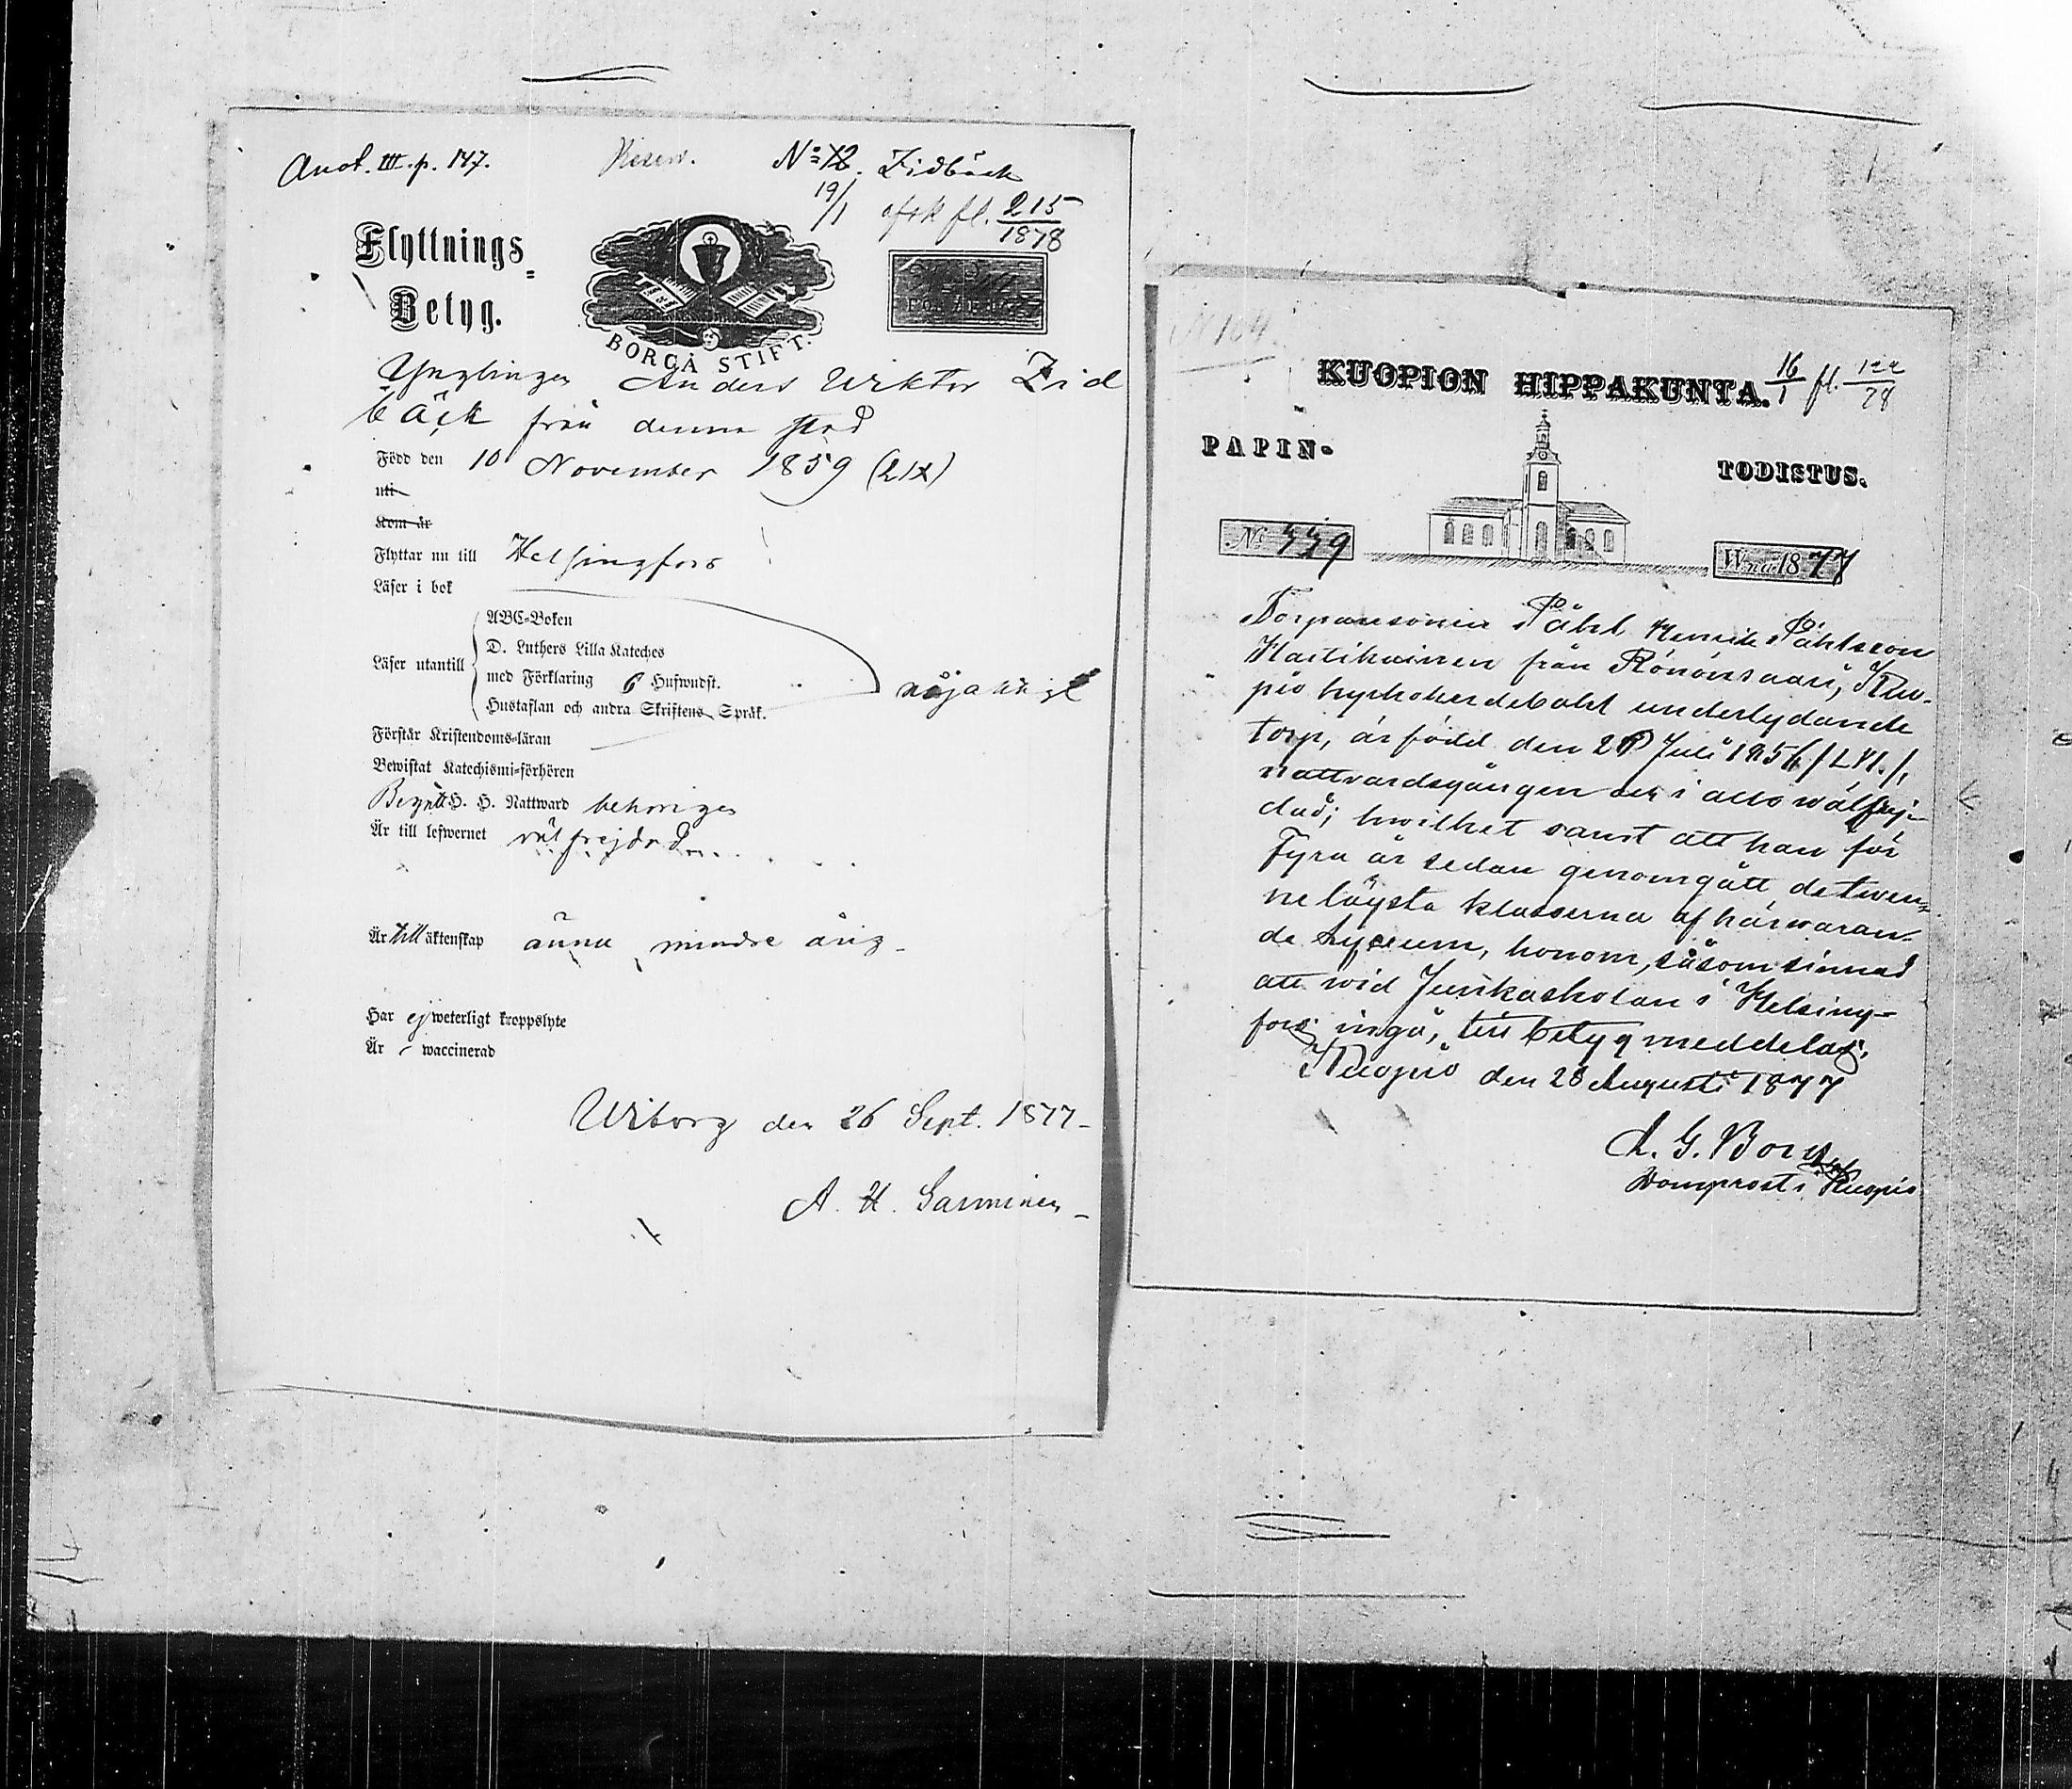 Anot. III. p. 147.
No 12. Zidbäck
19/1 afsk fl. 215/1878
Flyttnings-
Betyg.
BORGÅ STIFT.
Ynglingen Anders Wiktor Zid
bäck från denna stad
Född den 10 November 1859 (LIX)
uti
Kom år
Flyttar nu till Helsingfors
Läser i bok
Läser utantill
ABC-Boken
D. Luthers Lilla Kateches
med Förklaring 6 Hufwudst.
Hustaflan och andra Skriftens Språk.
nöjaktigt
Förstår Kristendoms-läran
Bewistat Katechismi-förhören
Begått H. H. Nattward behörigen
Är till lefwernet välfrejdad
Är till äktenskap ännu mindre årig
Har ej weterligt kroppslyte
Är waccinerad
Wiborg den 26 Sept. 1877
A. H. Sarminen
N 164
KUOPION HIPPAKUNTA. 16/1 fl. 122/78
PAPIN-
TODISTUS.
No 779
Wna 1877
Torparesonen Påhl Henrik Påhlsson
Hartikainen från Rönönsaari, Kuo-
pio kyrkoherdebohl underlydande
torp, är född den 28 Juli 1856 /LVI./,
nattvardsgången och i allo wälfrej-
dad; hwilket samt att han för
Fyra år sedan genomgått de twen-
ne lägsta klasserna af härwaran-
de Lyceum, honom, såsom sinnad
att wid Junkaskolan i Helsing-
fors ingå, till betyg meddelas.
Kuopio den 28 Augusti 1877
A. G. Borg
Domprost i Kuopio